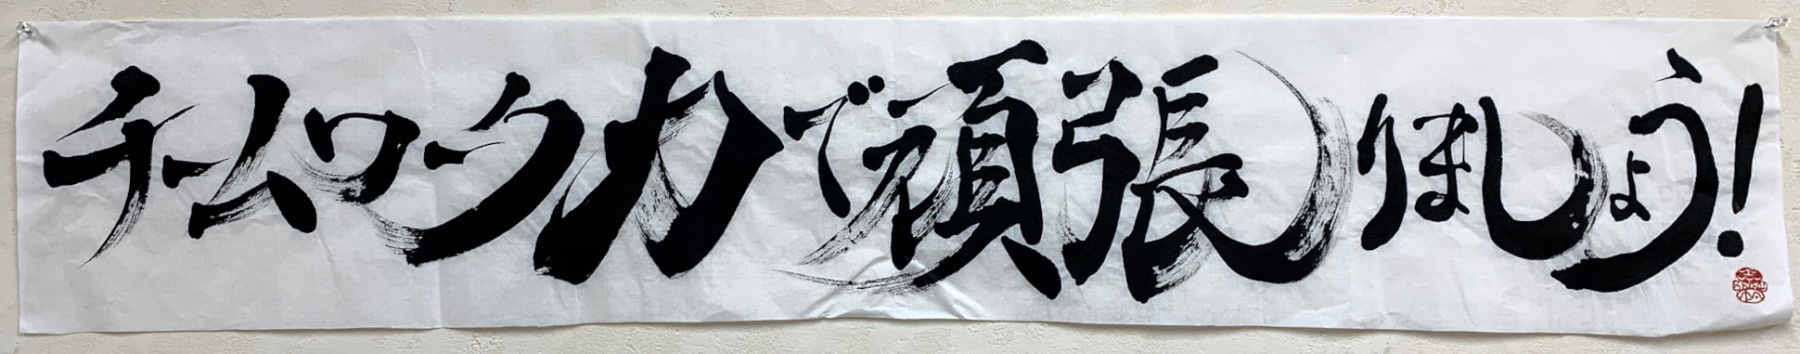 チームワーク力で頑張りましょう!